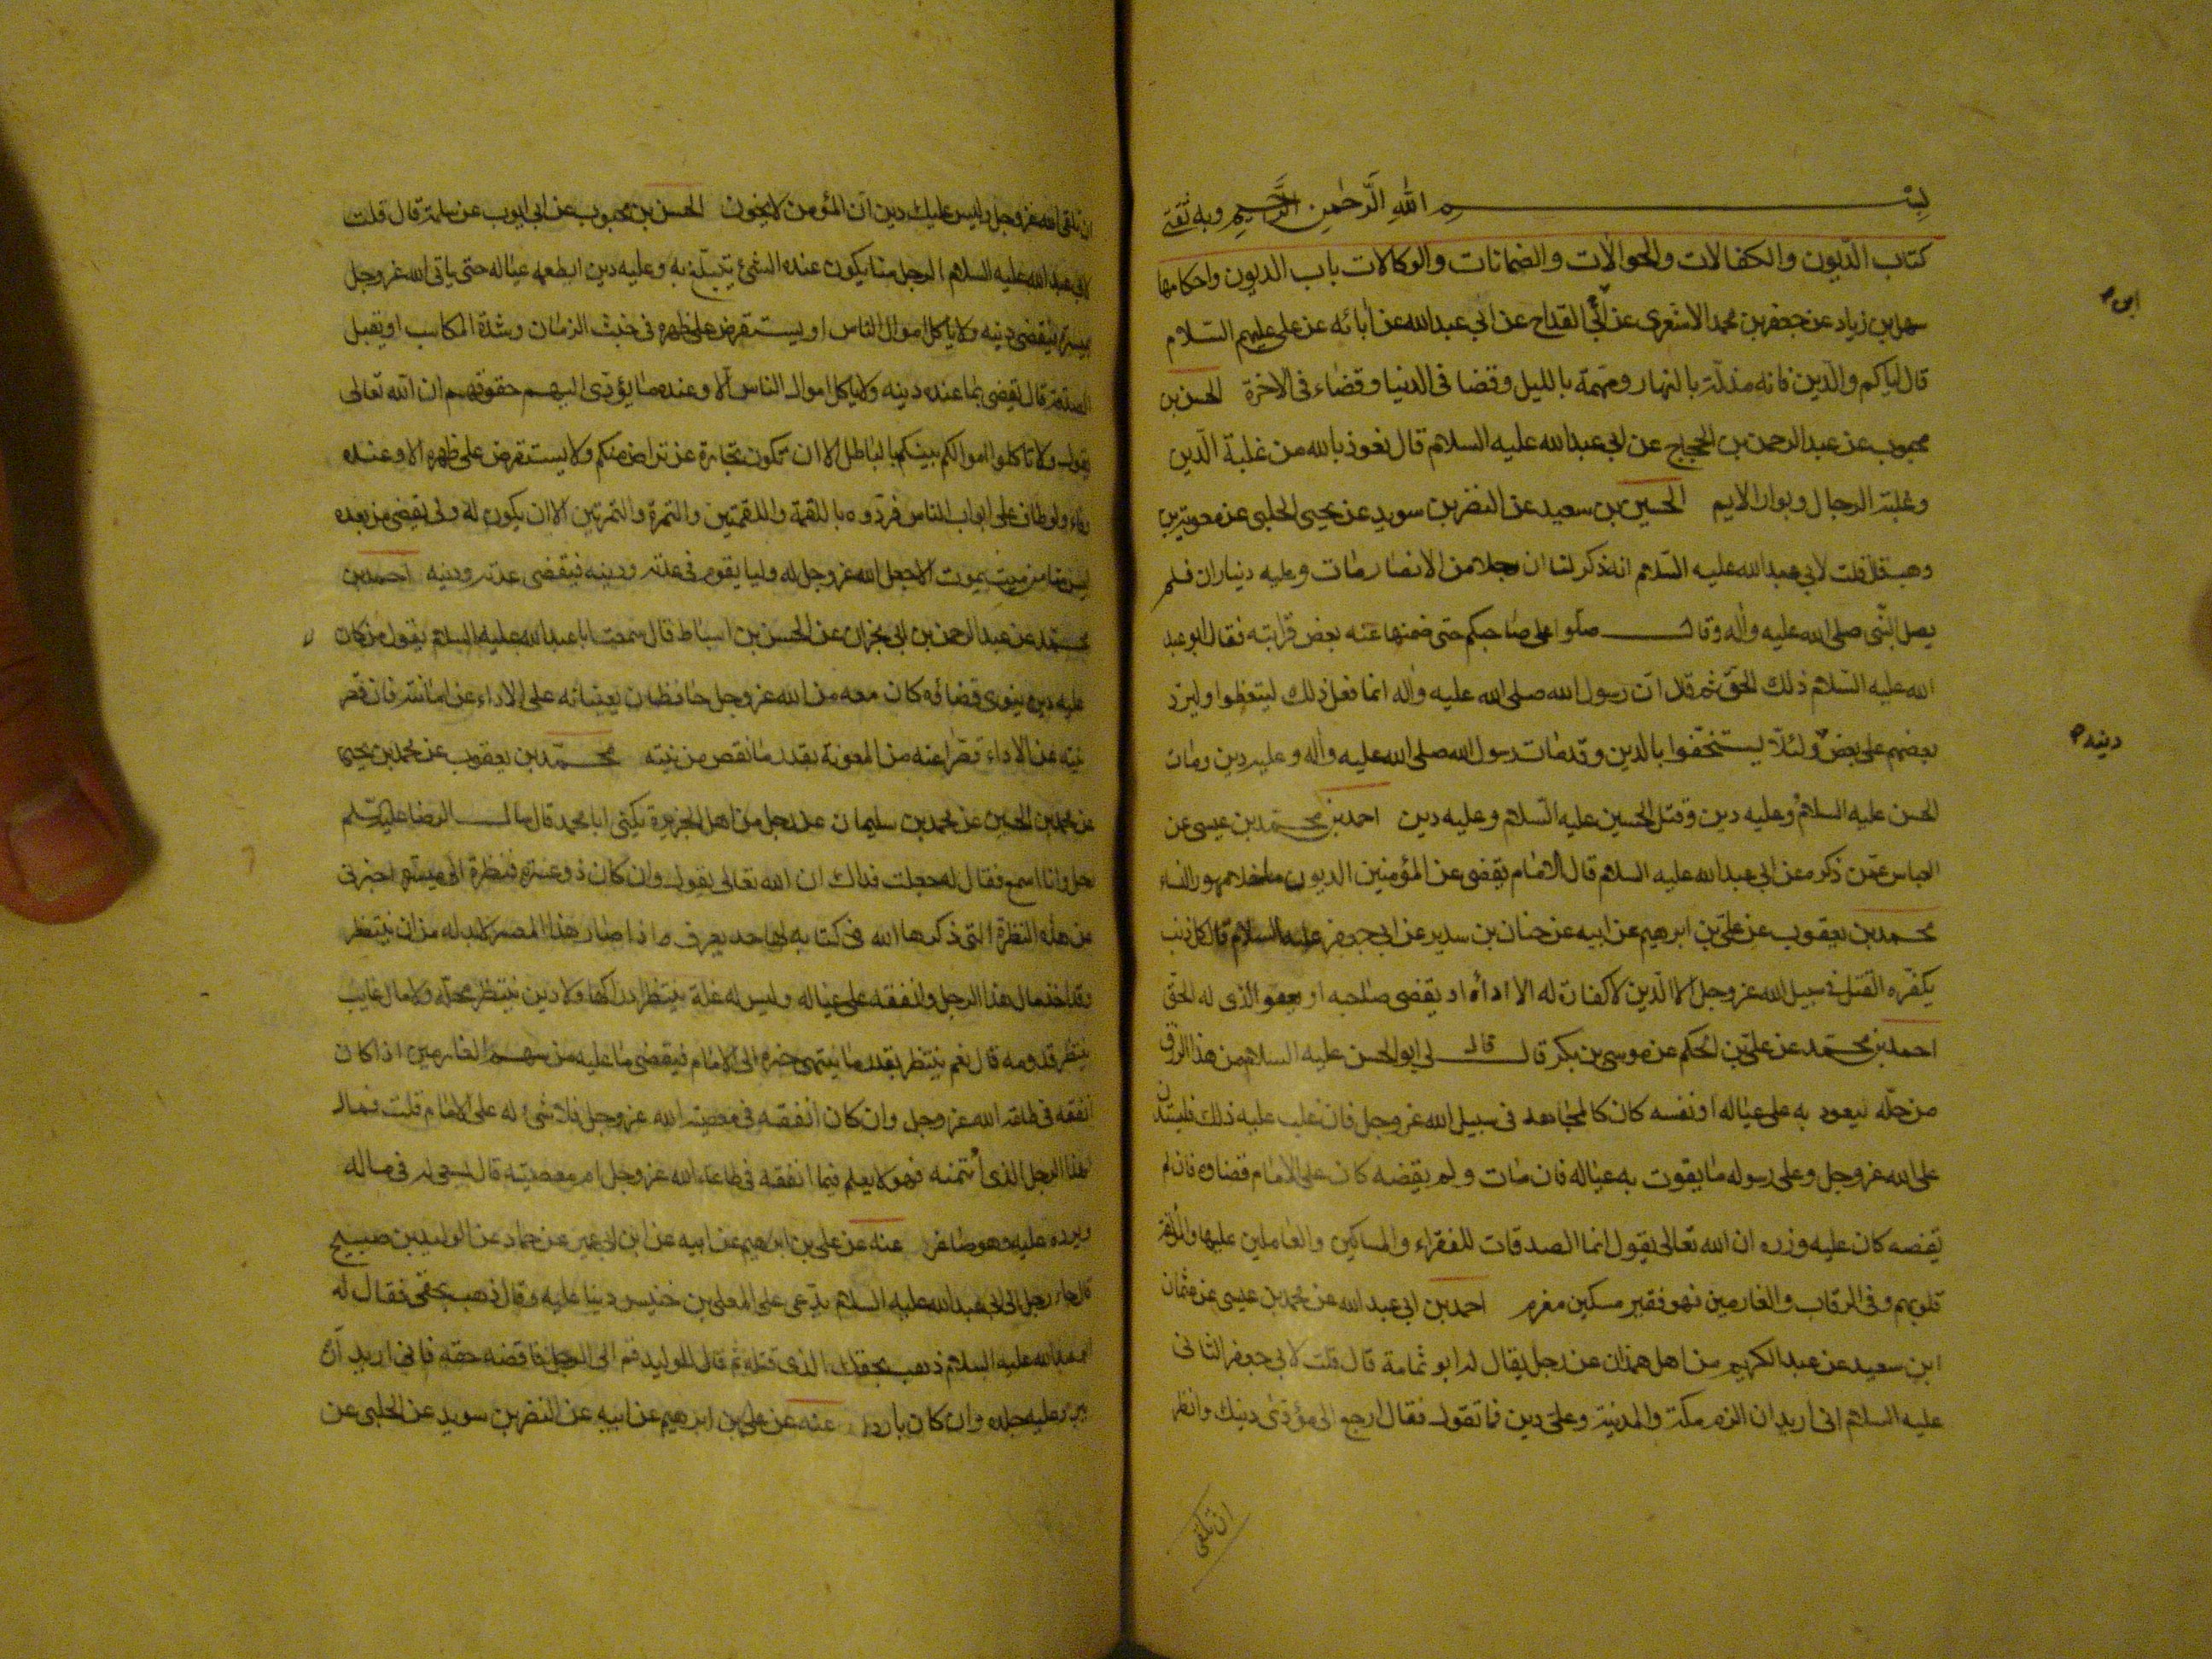 بسم الله الرحمن الرحيم وبه ثقتي
كتاب الديون والكفالات والحوالات والضمانات والوكالات باب الديون واحكامها
سهل بن زياد عن جعفر بن محمد الاشعري عن ابي القداح عن ابي عبد الله عن ابائه عن علي عليهم السلام
ابن
قال اياكم والدين فانه مذلة بالنهار ومهمة بالليل وقضا في الدنيا وقضاء في الاخرة الحسن بن
محبوب عن عبد الرحمن بن الحجاج عن ابي عبد الله عليه السلام قال نعوذ بالله من غلبة الدين
وغلبة الرجال وبوار الايم الحسين بن سعيد عن النضر بن سويد عن يحيى الحلبي عن معوية بن
وهب قال قلت لابي عبد الله عليه السلام انه ذكر لنا ان رجلا من الانصار مات وعليه ديناران فلم
يصل النبي صلى الله عليه واله وقال صلوا على صاحبكم حتى ضمنها عنه بعض قرابته فقال ابو عبد
الله عليه السلام ذلك الحق ثم قال ان رسول الله صلى الله عليه واله انما فعل ذلك ليتعظوا وليرد
بعضهم على بعض ولئلا يستخفوا بالدين وقد مات رسول الله صلى الله عليه واله وعليه دين ومات
دينه
الحسن عليه السلام وعليه دين وقتل الحسين عليه السلام وعليه دين احمد بن محمد بن عيسى عن
العباس عمن ذكره عن ابي عبد الله عليه السلام قال الامام يقضي عن المؤمنين الديون ما خلا مهور النساء
محمد بن يعقوب عن علي بن ابرهيم عن ابيه عن حنان بن سدير عن ابي جعفر عليه السلام قال كل ذنب
يكفره القتل في سبيل الله عز وجل الا الدين لا كفارة له الا اداؤه او يقضي صاحبه او يعفو الذي له الحق
احمد بن محمد عن علي بن الحكم عن موسى بن بكر قال قال لي ابو الحسن عليه السلام من هذا الرزق
من حله ليعود به على عياله او نفسه كان كالمجاهد في سبيل الله عز وجل فان غلب عليه ذلك فليستدن
على الله عز وجل وعلى رسوله ما يقوت به عياله فان مات ولم يقضه كان على الامام قضاؤه فان لم
يقضه كان عليه وزره ان الله تعالى يقول انما الصدقات للفقراء والمساكين والعاملين عليها والمؤلفة
قلوبهم وفي الرقاب والغارمين فهو فقير مسكين مغرم احمد بن ابي عبد الله عن محمد بن عيسى عن عثمان
ابن سعيد عن عبد الكريم من اهل همذان عن رجل يقال له ابو ثمامة قال قلت لابي جعفر الثاني
عليه السلام اني اريد ان الزم مكة والمدينة وعلي دين فما تقول فقال ارجع الى مؤدى دينك وانظر
ان تلقى
ان تلقى الله عز وجل وليس عليك دين ان المؤمن لا يخون الحسن بن محبوب عن ابي ايوب عن سلمة قال قلت
لابي عبد الله عليه السلام الرجل منا يكون عنده الشئ يتبلغ به وعليه دين ايطعمه عياله حتى ياتي الله عز وجل
بميسرة فيقضي دينه ولا ياكل اموال الناس او يستقرض على ظهره في خبث الزمان وشدة المكاسب او يقبل
الصدقة قال يقضي بما عنده دينه ولا ياكل اموال الناس الا وعنده ما يؤدى اليهم حقوقهم ان الله تعالى
يقول ولا تاكلوا اموالكم بينكم بالباطل الا ان تكون تجارة عن تراض منكم ولا يستقرض على ظهره الا وعنده
وفاء ولو طاف على ابواب الناس فردوه باللقمة واللقمتين والتمرة والتمرتين الا ان يكون له ولي يقضي من بعده
ليس منا من ميت يموت الا جعل الله عز وجل له وليا يقوم في عدته ودينه فيقضي عدته ودينه احمد بن
محمد عن عبد الرحمن بن ابي نجران عن الحسن بن اسباط قال سمعت ابا عبد الله عليه السلام يقول من كان
عليه دين ينوى قضاؤه كان معه من الله عز وجل حافظان يعينانه على الاداء عن امانته فان قصر
نيته عن الاداء قصرا عنه من المعونة بقدر ما نقص من نيته محمد بن يعقوب عن محمد بن يحيى
عن محمد بن الحسين عن محمد بن سليمان عن رجل من اهل الجزيرة يكنى ابا محمد قال سال الرضا عليه السلم
رجل وانا اسمع فقال له جعلت فداك ان الله تعالى يقول وان كان ذو عسرة فنظرة الى ميسرة اخبرني
عن هذه النظرة التي ذكرها الله في كتابه لها حد يعرف ما اذا صار هذا المعسر لابد له من ان ينتظر
وقد اخذ مال هذا الرجل وانفقه على عياله وليس له غلة ينتظر ادراكها ولا دين ينتظر محله ولا مال غايب
ينتظر قدومه قال نعم ينتظر بقدر ما ينتهى خبره الى الامام فيقضي ما عليه من سهم الغارمين اذا كان
انفقه في طاعة الله عز وجل وان كان انفقه في معصية الله عز وجل فلا شئ له على الامام قلت فمال
هذا الرجل الذي ائتمنه فهو لا يعلم فيما انفقه في طاعة الله عز وجل ام معصيته قال يسعى له في ماله
ويرده عليه وهو صاغر عنه عن علي بن ابراهيم عن ابيه عن ابن ابي عمير عن حماد عن الوليد بن صبيح
قال جاء رجل الى ابي عبد الله عليه السلام يدعى على المعلى بن خنيس دينا عليه وقال ذهب بحقي فقال له
ابو عبد الله عليه السلام ذهب بحقك الذي قتله ثم قال للوليد قم الى الرجل فاقضه حقه فاني اريد ان
يبرد عليه جلده وان كان باردا عنه عن علي بن ابرهيم عن ابيه عن النضر بن سويد عن الحلبي عن